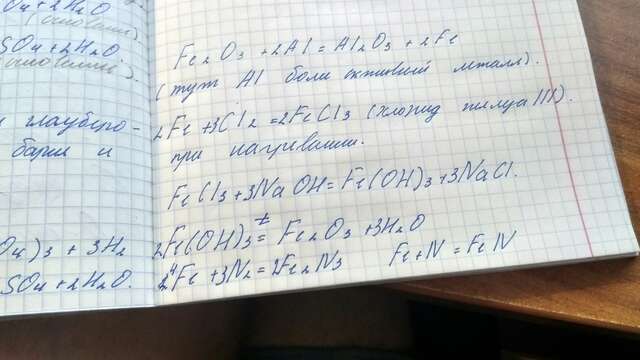 SO4 + 2H2O
SO4 + 2H2O
глауберо-
барии и
O4)3 + 3H2
SO4 + 2H2O.
Fe2O3 + 2Al = Al2O3 + 2Fe
(тут Al более активный металл).
2Fe + 3Cl2 = 2FeCl3 (хлорид железа III).
при нагревании.
FeCl3 + 3NaOH = Fe(OH)3 + 3NaCl.
2Fe(OH)3 t= Fe2O3 + 3H2O
Fe + 3N2 = 2Fe2N3 Fe + N = FeN